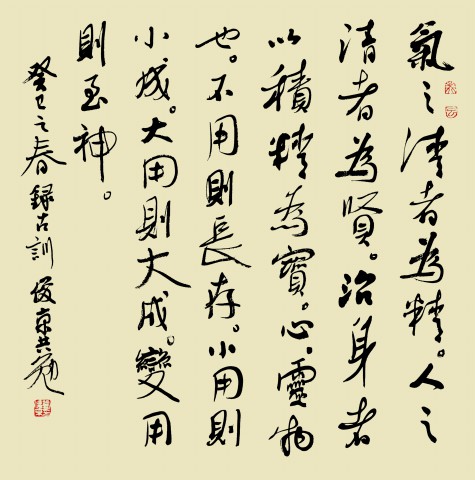 氣之清者為精。人之
清者為賢。治身者
以積精為寶。心。靈物
也。不用則長存。小用則
小成。大用則大成。變用
則至神。
癸巳之春錄古訓 俊京共勉